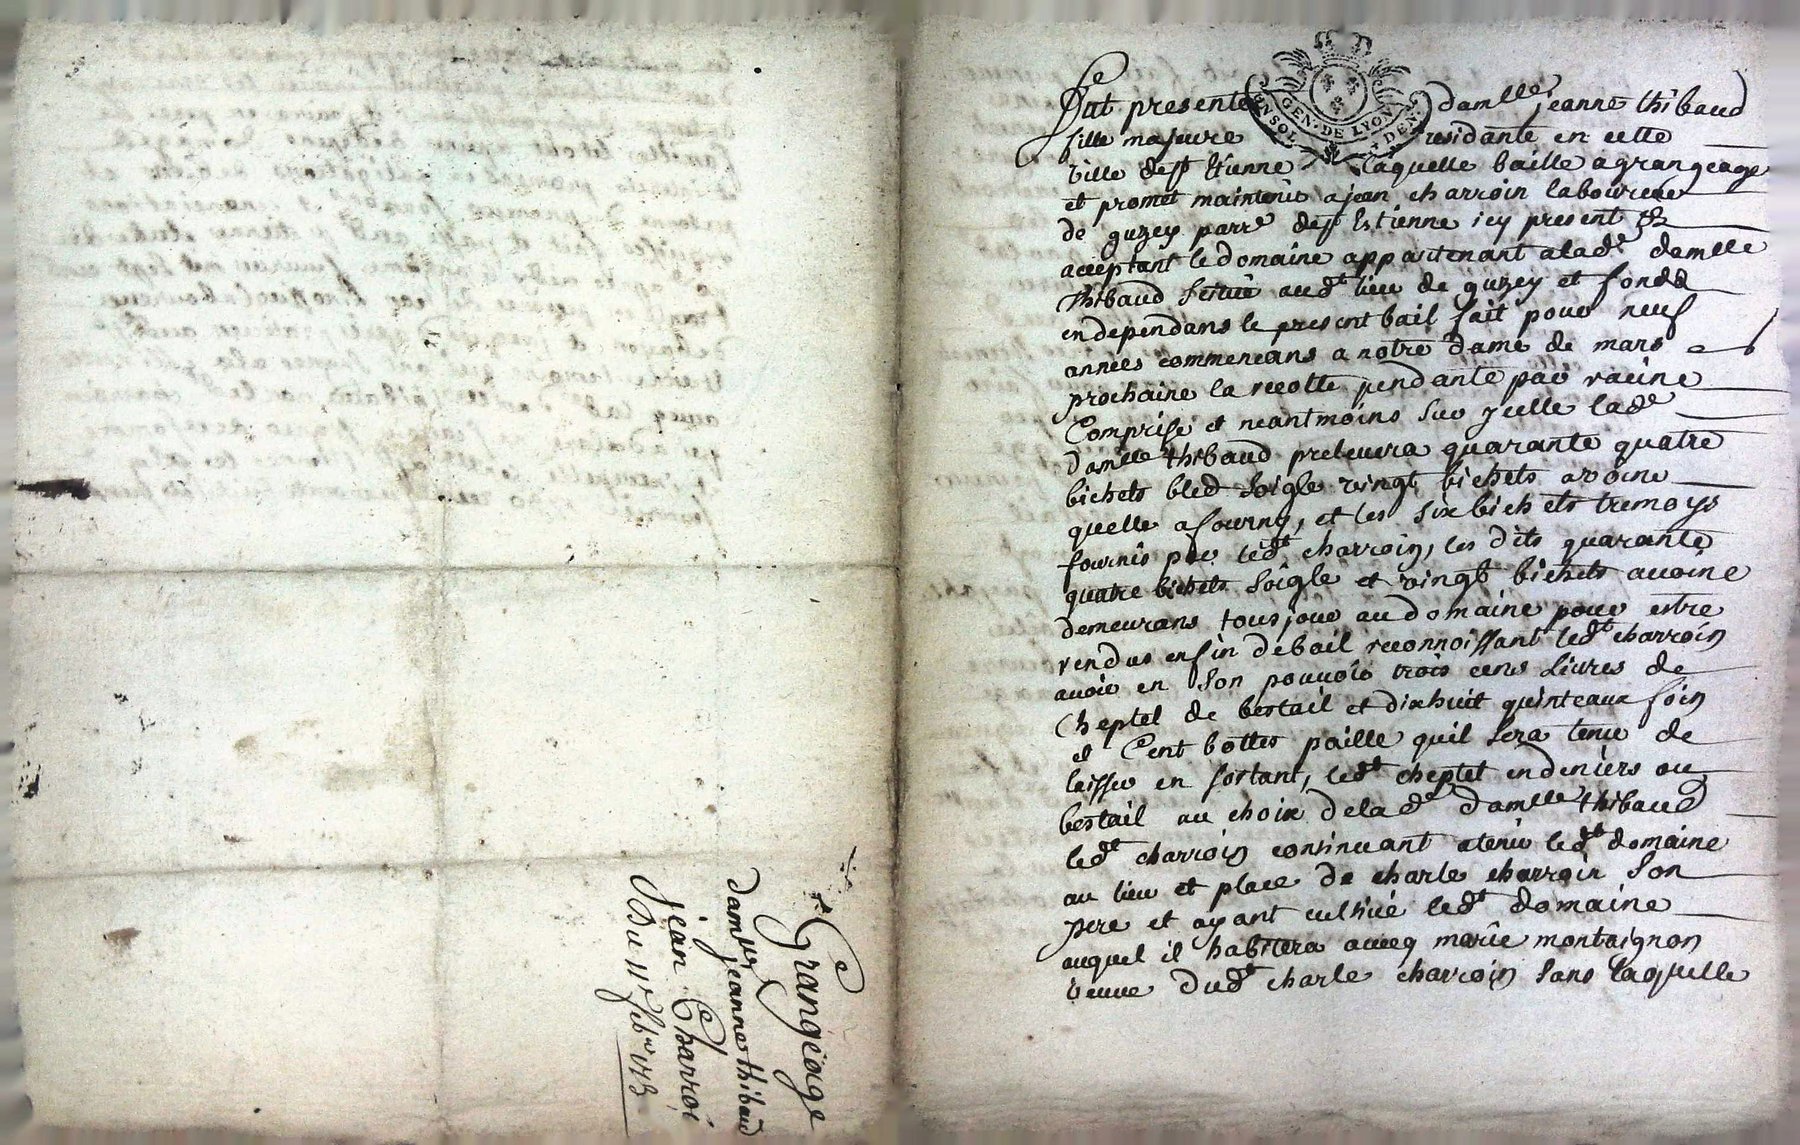 Grangeage
damlle jeanne thibaud
jean Charroi
Du 11e feb.
GEN. DE LYON
Fut presente damlle jeanne thibaud
fille majeure residante en cette
ville de st Etienne laquelle baille a grangeage
et promet maintenir a jean charroin laboureur
de guzey parre de st Estienne icy present &
acceptant le domaine appartenant a lade damlle
thibaud scitué audt lieu de guzey et fonds
en dependans le present bail fait pour neuf
années commencans a notre dame de mars
prochaine la recolte pendante par racine
Comprise et neantmoins sur ycelle lade
damlle thibaud prelevera quarante quatre
bichets bled soigle vingt bichets avoine
quelle a fourny, et les six bichets tremoys
fournis par ledt charroin, les dits quarante
quatre bichets soigle et vingt bichets avoine
demeurans tousjour au domaine pour estre
rendus en fin de bail reconnoissant ledt charroin
avoir en son pouvoir trois cens livres de
Cheptel de bestail et dixhuit quinteaux foin
et Cent bottes paille quil sera tenu de
laisser en sortant, ledt cheptel en deniers ou
bestail au choix de lade damlle thibaud
ledt charroin continuant a tenir ledt domaine
au lieu et place de charle charroin son
pere et ayant cultivé ledt domaine
auquel il habitera avecq marie montaignon
veuve dudt charle charroin sans laquelle